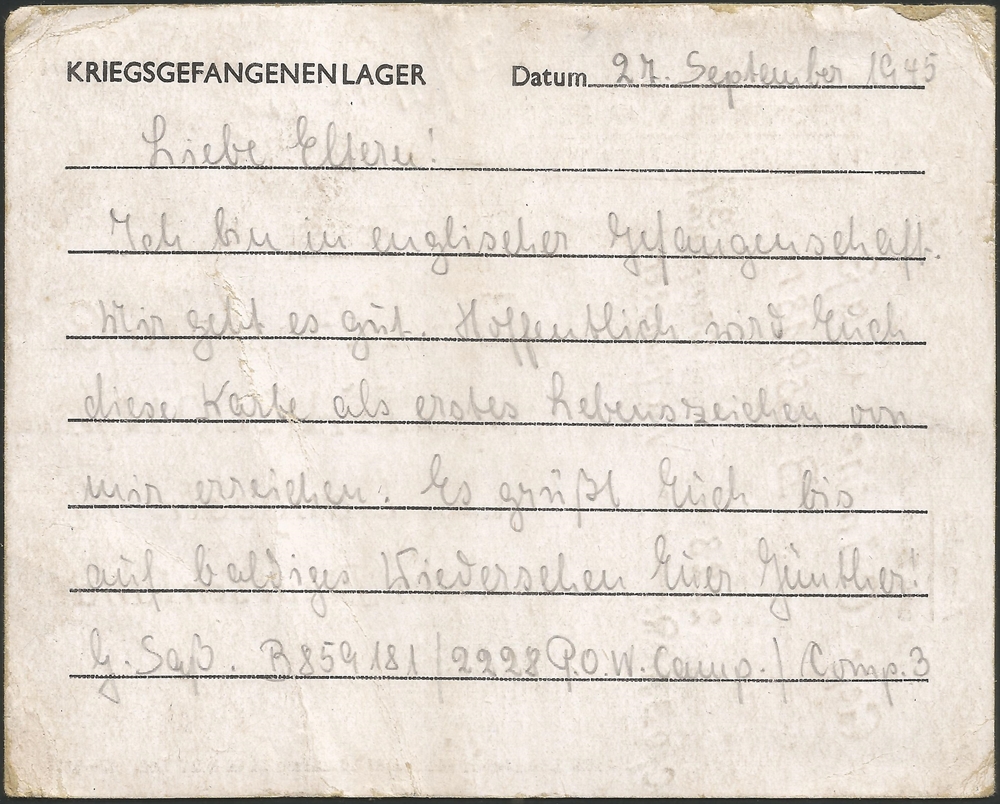 KRIEGSGEFANGENENLAGER Datum 27. September 1945
Liebe Eltern!
Ich bin in englischer Gefangenschaft.
Mir geht es gut. Hoffentlich wird Euch
diese Karte als erstes Lebenszeichen von
mir erreichen. Es grüßt Euch bis
auf baldiges Wiedersehen Euer Günther!
G. Saß. B859181/2228 P.O.W. Camp./Comp. 3